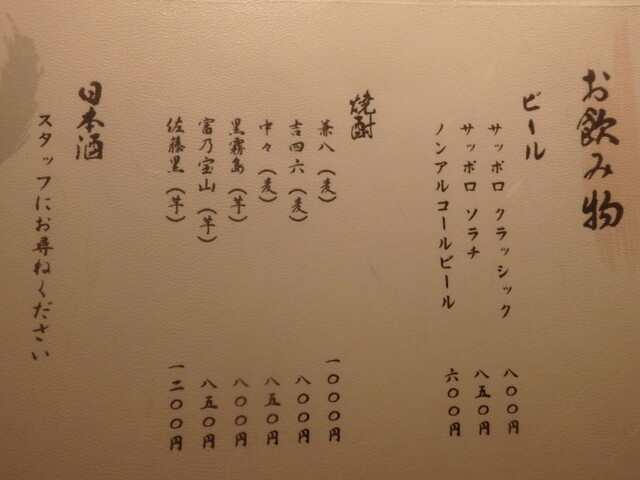 お飲み物
ビール
サッポロ クラッシック 八〇〇円
サッポロ ソラチ 八五〇円
ノンアルコールビール 六〇〇円
焼酎
兼八（麦） 一〇〇〇円
吉四六（麦） 八〇〇円
中々（麦） 八五〇円
黒霧島（芋） 八〇〇円
富乃宝山（芋） 八五〇円
佐藤黒（芋） 一二〇〇円
日本酒
スタッフにお尋ねください